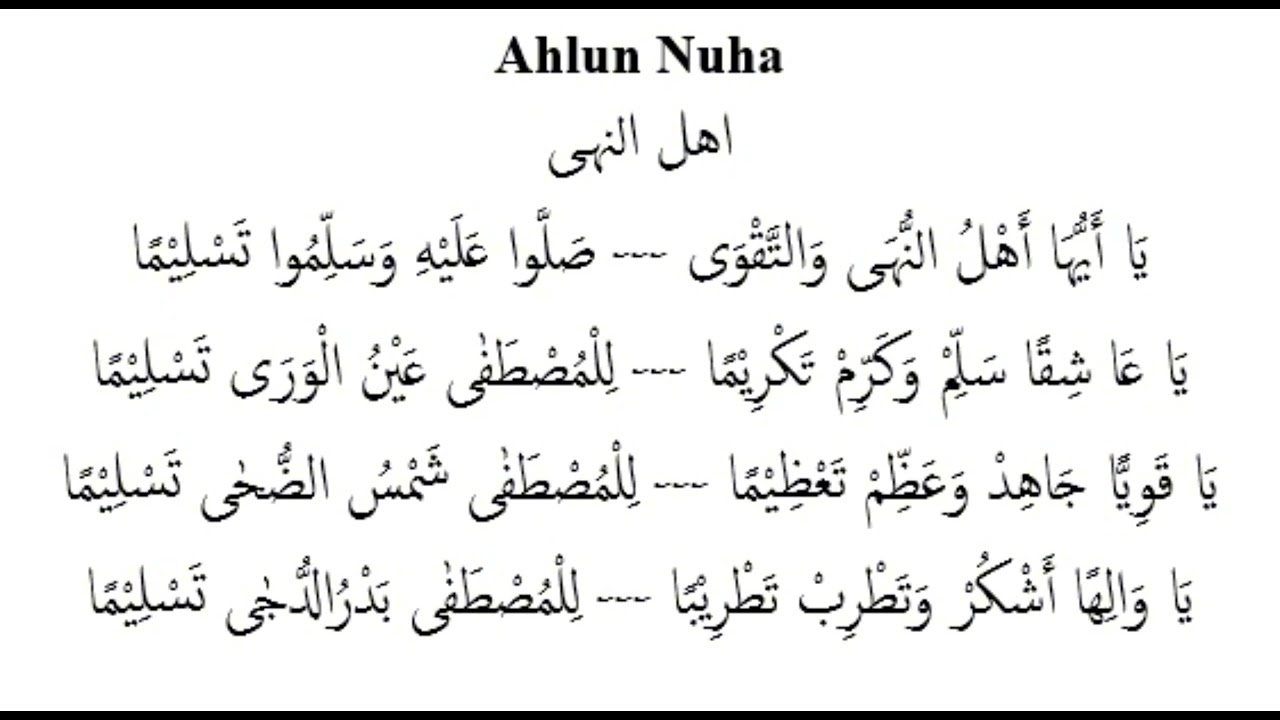 Ahlun Nuha
اهل النهى
يَا أَيُّهَا أَهْلُ النُّهَى وَالتَّقْوَى --- صَلَّوا عَلَيْهِ وَسَلِّمُوا تَسْلِيْمًا
يَا عَا شِقًا سَلِّمْ وَكَرِّمْ تَكْرِيْمًا --- لِلْمُصْطَفٰى عَيْنُ الْوَرَى تَسْلِيْمًا
يَا قَوِيًّا جَاهِدْ وَعَظِّمْ تَعْظِيْمًا --- لِلْمُصْطَفٰى شَمْسُ الضُّحٰى تَسْلِيْمًا
يَا وَالِهًا أَشْكُرْ وَتَطْرِبْ تَطْرِيْبًا --- لِلْمُصْطَفٰى بَدْرُالدُّجٰى تَسْلِيْمًا